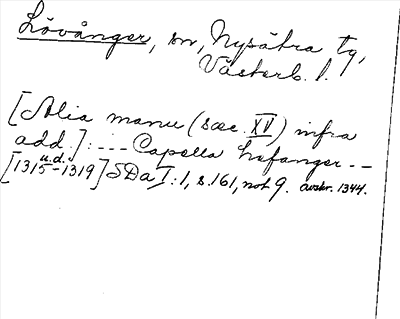 Lövånger, sn, Nysätra tg,
Västerb. l.
[Alia manu (sæc. XV) infra
add.]: --- Capella Lefanger --
[1315 u.d. - 1319] SDa I:1, s.161, not 9. avskr. 1344.